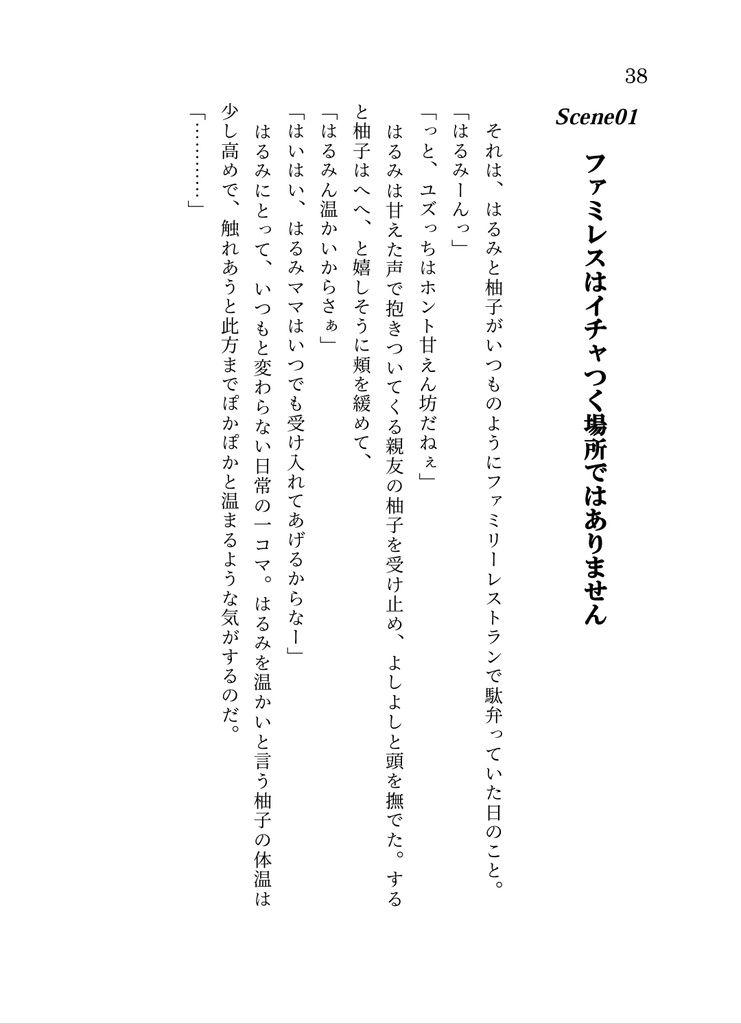 38
Scene01
ファミレスはイチャつく場所ではありません
それは、はるみと柚子がいつものようにファミリーレストランで駄弁っていた日のこと。
「はるみーんっ」
「っと、ユズっちはホント甘えん坊だねぇ」
はるみは甘えた声で抱きついてくる親友の柚子を受け止め、よしよしと頭を撫でた。する
と柚子はへへ、と嬉しそうに頬を緩めて、
「はるみん温かいからさぁ」
「はいはい、はるみママはいつでも受け入れてあげるからなー」
はるみにとって、いつもと変わらない日常の一コマ。はるみを温かいと言う柚子の体温は
少し高めで、触れあうと此方までぽかぽかと温まるような気がするのだ。
「…………」